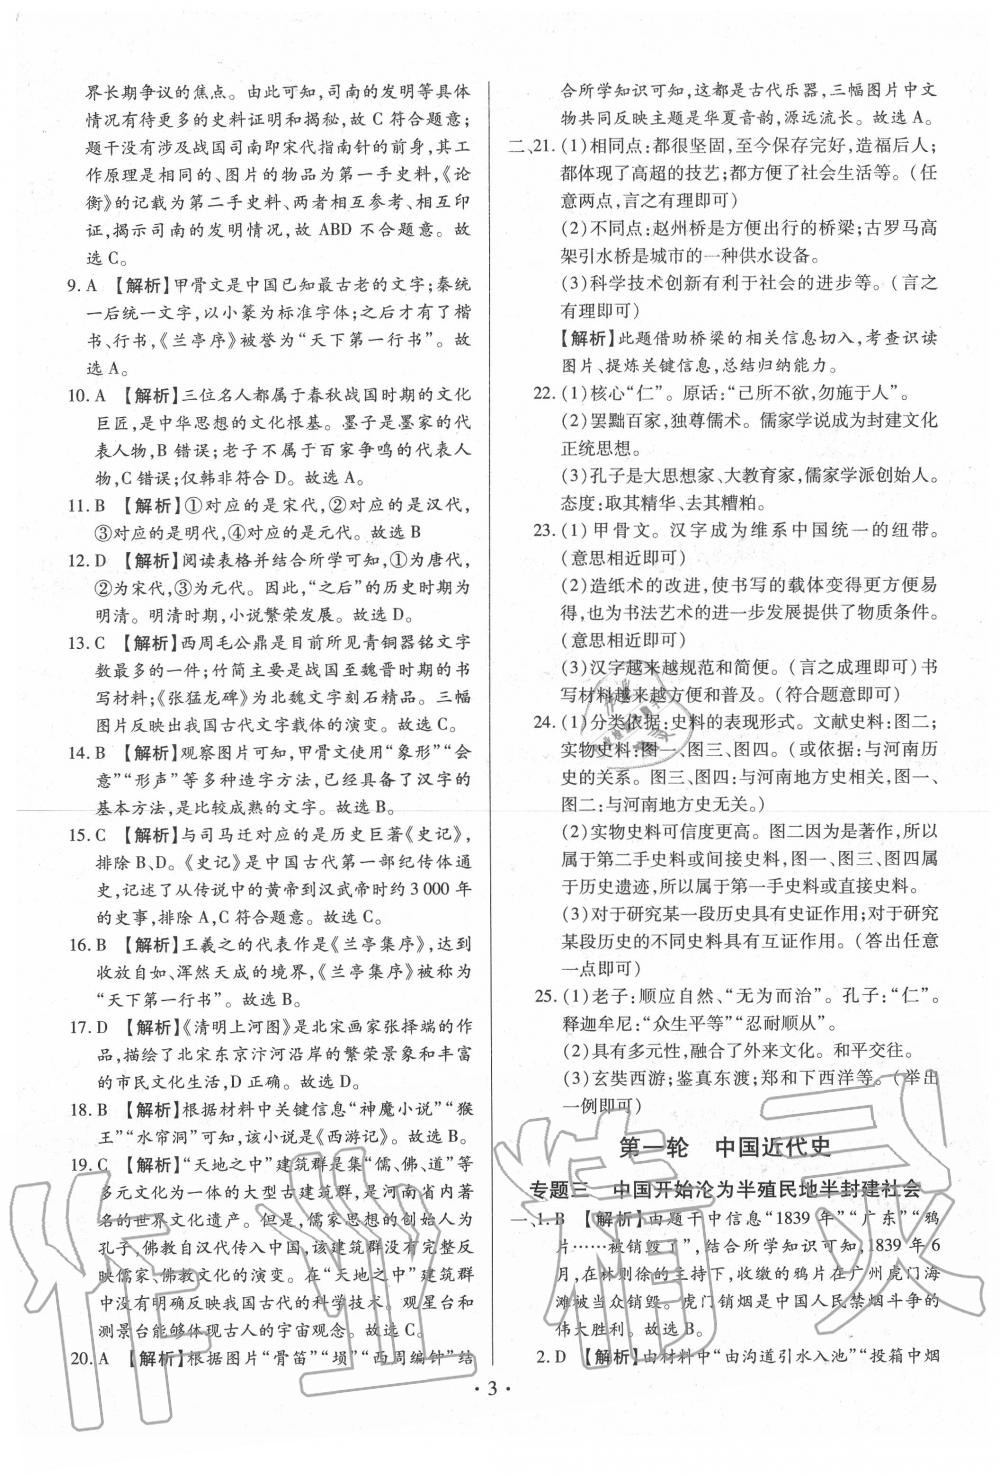 界长期争议的焦点。由此可知,司南的发明等具体
情况有待更多的史料证明和揭秘,故C符合题意;
题干没有涉及战国司南即宋代指南针的前身,其工
作原理是相同的、图片的物品为第一手史料,《论
衡》的记载为第二手史料、两者相互参考、相互印
证,揭示司南的发明情况,故ABD不合题意。故
选C。
9. A 【解析】甲骨文是中国已知最古老的文字;秦统
一后统一文字,以小篆为标准字体;之后才有了楷
书、行书,《兰亭序》被誉为“天下第一行书”。故
选A。
10. A 【解析】三位名人都属于春秋战国时期的文化
巨匠,是中华思想的文化根基。墨子是墨家的代
表人物,B错误;老子不属于百家争鸣的代表人
物,C错误;仅韩非符合D。故选A。
11. B 【解析】①对应的是宋代,②对应的是汉代,
③对应的是明代,④对应的是元代。故选B
12. D 【解析】阅读表格并结合所学可知,①为唐代,
②为宋代,③为元代。因此,“之后”的历史时期为
明清。明清时期,小说繁荣发展。故选D。
13. C 【解析】西周毛公鼎是目前所见青铜器铭文字
数最多的一件;竹简主要是战国至魏晋时期的书
写材料;《张猛龙碑》为北魏文字刻石精品。三幅
图片反映出我国古代文字载体的演变。故选C。
14. B 【解析】观察图片可知,甲骨文使用“象形”“会
意”“形声”等多种造字方法,已经具备了汉字的
基本方法,是比较成熟的文字。故选B。
15. C 【解析】与司马迁对应的是历史巨著《史记》,
排除B、D。《史记》是中国古代第一部纪传体通
史,记述了从传说中的黄帝到汉武帝时约3 000年
的史事,排除A,C符合题意。故选C。
16. B 【解析】王羲之的代表作是《兰亭集序》,达到
收放自如、浑然天成的境界,《兰亭集序》被称为
“天下第一行书”。故选B。
17. D 【解析】《清明上河图》是北宋画家张择端的作
品,描绘了北宋东京汴河沿岸的繁荣景象和丰富
的市民文化生活,D正确。故选D。
18. B 【解析】根据材料中关键信息“神魔小说”“猴
王”“水帘洞”可知,该小说是《西游记》。故选B。
19. C 【解析】“天地之中”建筑群是集“儒、佛、道”等
多元文化为一体的大型古建筑群,是河南省内著
名的世界文化遗产。但是,儒家思想的创始人为
孔子,佛教自汉代传入中国,该建筑群没有完整反
映儒家、佛教文化的演变。在“天地之中”建筑群
中没有明确反映我国古代的科学技术。观星台和
测景台能够体现古人的宇宙观念。故选C。
20. A 【解析】根据图片“骨笛”“埙”“西周编钟”结
合所学知识可知,这都是古代乐器,三幅图片中文
物共同反映主题是华夏音韵,源远流长。故选A。
二、21. (1)相同点:都很坚固,至今保存完好,造福后人;
都体现了高超的技艺;都方便了社会生活等。(任
意两点,言之有理即可)
(2)不同点:赵州桥是方便出行的桥梁;古罗马高
架引水桥是城市的一种供水设备。
(3)科学技术创新有利于社会的进步等。(言之
有理即可)
【解析】此题借助桥梁的相关信息切入,考查识读
图片、提炼关键信息,总结归纳能力。
22. (1)核心“仁”。原话:“己所不欲,勿施于人”。
(2)罢黜百家,独尊儒术。儒家学说成为封建文化
正统思想。
(3)孔子是大思想家、大教育家,儒家学派创始人。
态度:取其精华、去其糟粕。
23. (1)甲骨文。汉字成为维系中国统一的纽带。
(意思相近即可)
(2)造纸术的改进,使书写的载体变得更方便易
得,也为书法艺术的进一步发展提供了物质条件。
(意思相近即可)
(3)汉字越来越规范和简便。(言之成理即可)书
写材料越来越方便和普及。(符合题意即可)
24. (1)分类依据:史料的表现形式。文献史料:图二;
实物史料:图一、图三、图四。(或依据:与河南历
史的关系。图三、图四:与河南地方史相关,图一、
图二:与河南地方史无关。)
(2)实物史料可信度更高。图二因为是著作,所以
属于第二手史料或间接史料,图一、图三、图四属
于历史遗迹,所以属于第一手史料或直接史料。
(3)对于研究某一段历史具有史证作用;对于研究
某段历史的不同史料具有互证作用。(答出任意
一点即可)
25. (1)老子:顺应自然、“无为而治”。孔子:“仁”。
释迦牟尼:“众生平等”“忍耐顺从”。
(2)具有多元性,融合了外来文化。和平交往。
(3)玄奘西游;鉴真东渡;郑和下西洋等。(举出
一例即可)
第一轮 中国近代史
专题三 中国开始沦为半殖民地半封建社会
一、1. B 【解析】由题干中信息“1839年”“广东”“鸦
片……被销毁了”,结合所学知识可知,1839年6
月,在林则徐的主持下,收缴的鸦片在广州虎门海
滩被当众销毁。虎门销烟是中国人民禁烟斗争的
伟大胜利。故选B。
2. D 【解析】由材料中“由沟道引水入池”“投箱中烟
· 3 ·
作业精灵